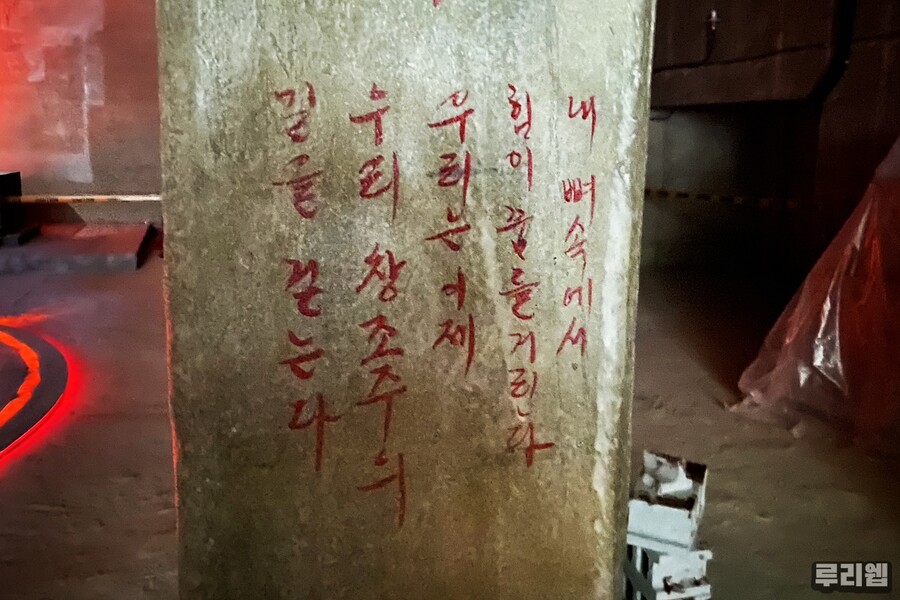 내 뼈속에서
힘이 꿈틀거리는다
우리는 이제
우리 창조주의
길을 걷는다
루리웹